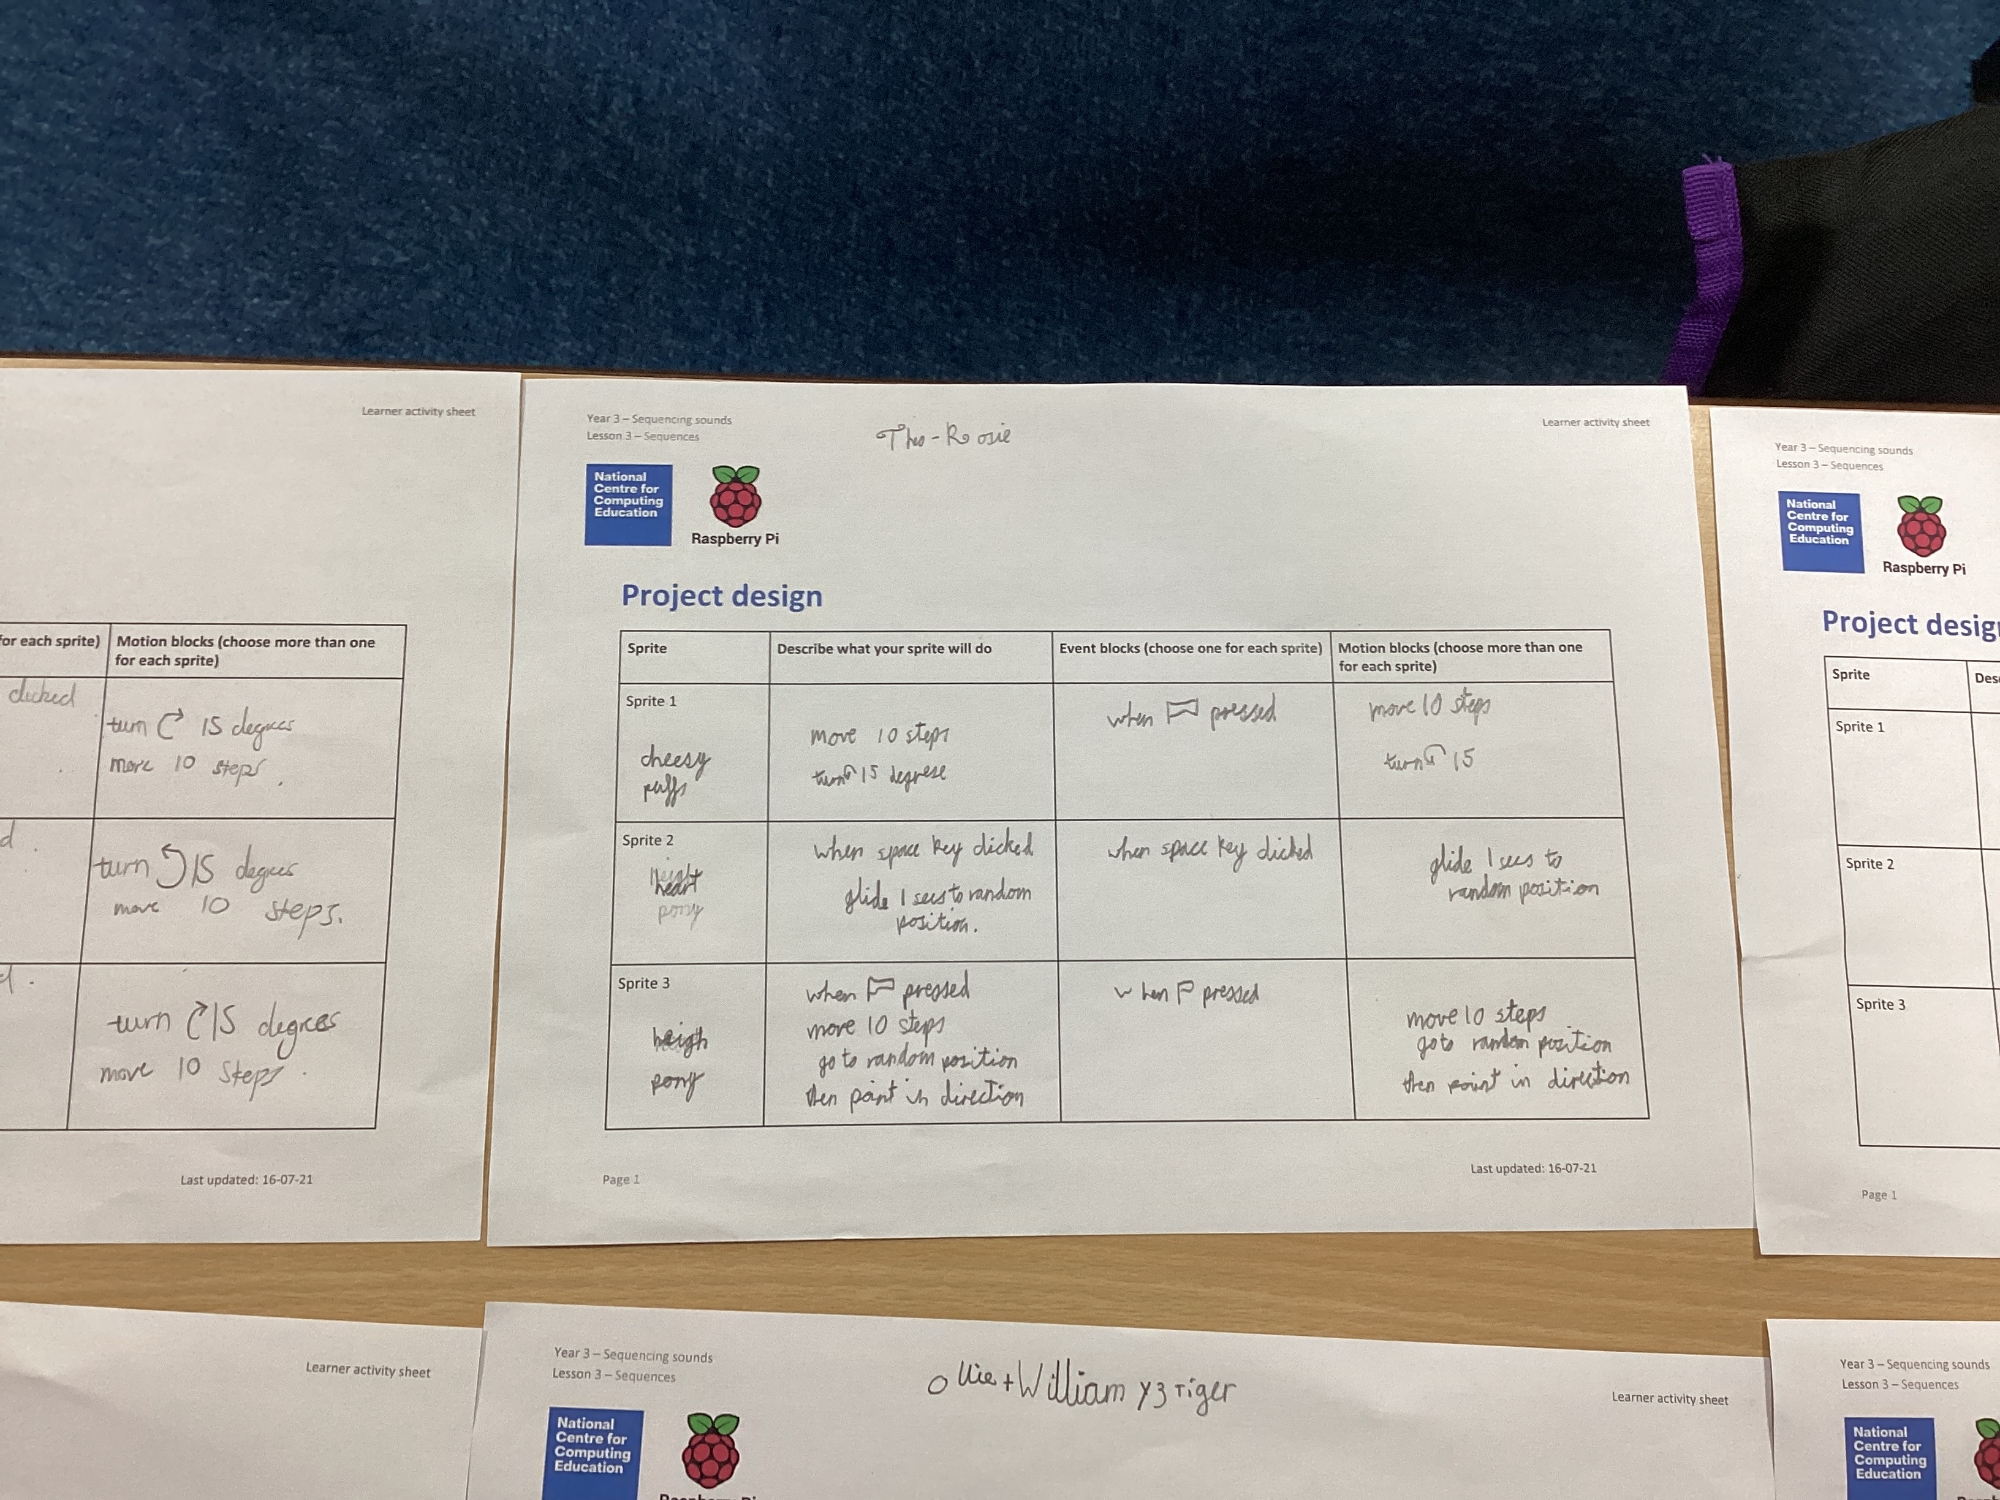 Learner activity sheet
for each sprite)
Motion blocks (choose more than one
for each sprite)
clicked
turn 15 degrees
move 10 steps.
d.
turn 15 degrees
move 10 steps.
d.
turn 15 degrees
move 10 steps.
Last updated: 16-07-21
Year 3 – Sequencing sounds
Lesson 3 – Sequences
Theo - Rosie
Learner activity sheet
National
Centre for
Computing
Education
Raspberry Pi
Project design
Sprite
Describe what your sprite will do
Event blocks (choose one for each sprite)
Motion blocks (choose more than one
for each sprite)
Sprite 1
cheesy
puffs
move 10 steps
turn 15 degrese
when pressed
move 10 steps
turn 15
Sprite 2
heart
pony
when space key clicked
glide 1 secs to random
position.
when space key clicked
glide 1 secs to
random position
Sprite 3
heigh
pony
when pressed
move 10 steps
go to random position
then point in direction
when pressed
move 10 steps
goto random position
then point in direction
Page 1
Last updated: 16-07-21
Year 3 – Sequencing sounds
Lesson 3 – Sequences
National
Centre for
Computing
Education
Raspberry Pi
Project design
Sprite
Des
Sprite 1
Sprite 2
Sprite 3
Page 1
Learner activity sheet
Year 3 – Sequencing sounds
Lesson 3 – Sequences
Ollie + William Y3 Tiger
Learner activity sheet
National
Centre for
Computing
Education
Raspberry Pi
Year 3 – Sequencing sounds
Lesson 3 – Sequences
National
Centre for
Computing
Education